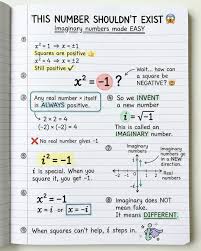 THIS NUMBER SHOULDN'T EXIST 😱
imaginary numbers made EASY
①
x² = 1 → x = ±1
Squares are positive 👍
x² = 4 → x = ±2
Still positive ✓
②
x² = -1 ?
Wait... how can
a square be
NEGATIVE?
③
Any real number × itself
is ALWAYS positive.
2 × 2 = 4
(-2) × (-2) = 4
❌ No real number gives -1
④
So we INVENT
a new number
i = √-1
This is called an
IMAGINARY number.
⑤
i² = -1
i is special. When you
square it, you get -1.
Imaginary
numbers
Imaginary
numbers go
in a NEW
direction.
⑧
x² = -1
x = i or x = -i
Imaginary does NOT
mean fake.
It means DIFFERENT.
When squares can't help, i steps in.